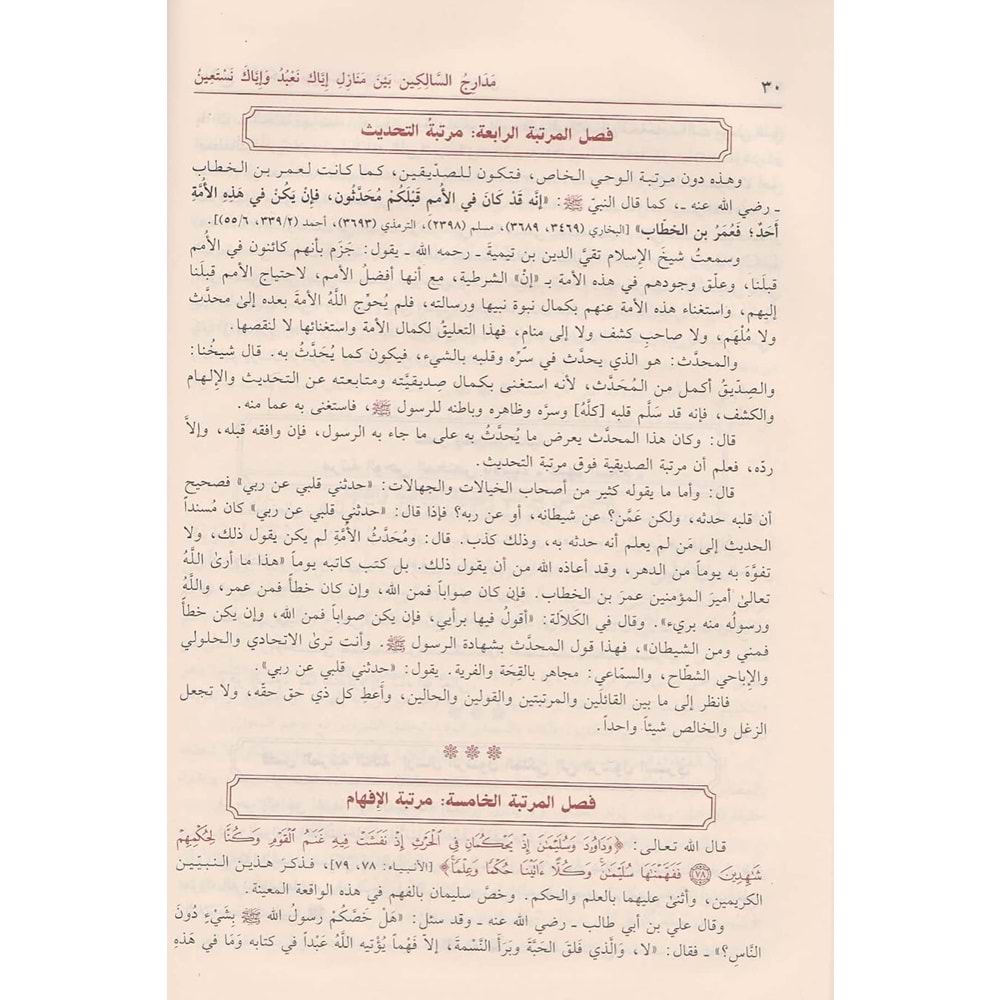 ٣٠
مَدَارِجُ السَّالِكِين بَيْنَ مَنَازِلِ إيَّاكَ نَعْبُدُ وَإِيَّاكَ نَسْتَعِينُ
فصل المرتبة الرابعة: مرتبةُ التحديث
وهذه دون مرتبة الوحي الخاص، فتكون للصدّيقين، كما كانت لعمر بن الخطاب
ـ رضي الله عنه ـ، كما قال النبيّ ﷺ: «إنَّه قَدْ كَانَ في الأُممِ قَبْلَكُمْ مُحَدَّثُون، فإنْ يَكُنْ في هَذِهِ الأُمَّةِ
أَحَدٌ؛ فَعُمَرُ بن الخطَّاب» [البخاري (٣٤٦٩، ٣٦٨٩)، مسلم (٢٣٩٨)، الترمذي (٣٦٩٣)، أحمد (٣٣٩/٢، ٥٥/٦)].
وسمعتُ شيخَ الإسلام تقيَّ الدين بن تيمية ـ رحمه الله ـ يقول: جَزَم بأنهم كائنون في الأُمم
قبلَنا، وعلّق وجودهم في هذه الأمة بـ «إنْ» الشرطية، مع أنها أفضلُ الأمم، لاحتياج الأمم قبلَنا
إليهم، واستغناء هذه الأمة عنهم بكمال نبوة نبيها ورسالته، فلم يُحوِّج اللَّهُ الأمةَ بعده إلىٰ محدَّث
ولا مُلْهَم، ولا صاحبِ كشف ولا إلى منام، فهذا التعليقُ لكمال الأمة واستغنائها لا لنقصها.
والمحدَّث: هو الذي يحدَّث في سرِّه وقلبه بالشيء، فيكون كما يُحَدَّثُ به. قال شيخُنا:
والصِدّيقُ أكمل من المُحَدَّث، لأنه استغنى بكمال صِديقيَّته ومتابعته عن التحديث والإلهام
والكشف، فإنه قد سَلَّم قلبه [كلَّهُ] وسرَّه وظاهره وباطنه للرسول ﷺ، فاستغنى به عما منه.
قال: وكان هذا المحدَّث يعرض ما يُحدَّثُ به على ما جاء به الرسول، فإن وافقه قبله، وإلاَّ
ردّه، فعلم أن مرتبة الصديقية فوق مرتبة التحديث.
قال: وأما ما يقوله كثير من أصحاب الخيالات والجهالات: «حدثني قلبي عن ربي» فصحيح
أن قلبه حدثه، ولكن عَمَّن؟ عن شيطانه، أو عن ربه؟ فإذا قال: «حدثني قلبي عن ربي» كان مُسنداً
الحديث إلى مَن لم يعلم أنه حدثه به، وذلك كذب. قال: ومُحَدَّثُ الأُمَّةِ لم يكن يقول ذلك، ولا
تفوَّه به يوماً من الدهر، وقد أعاذه الله من أن يقول ذلك. بل كتب كاتبه يوماً «هذا ما أرىٰ اللَّهُ
تعالىٰ أميرَ المؤمنين عمرَ بن الخطاب. فإن كان صواباً فمن الله، وإن كان خطأ فمن عمر، واللَّهُ
ورسولُه منه بريء». وقال في الكَلاَلَة: «أقولُ فيها برأيي، فإن يكن صواباً فمن الله، وإن يكن خطأ
فمني ومن الشيطان»، فهذا قول المحدَّث بشهادة الرسول ﷺ. وأنت ترىٰ الاتحادي والحلولي
والإباحي الشطَّاح، والسّماعي: مجاهر بالقِحَة والفرية. يقول: «حدثني قلبي عن ربي».
فانظر إلى ما بين القائلَين والمرتبتين والقولين والحالين، وأَعطِ كل ذي حق حقّه، ولا تجعل
الزغل والخالص شيئاً واحداً.
فصل المرتبة الخامسة: مرتبة الإفهام
قال الله تعالى: ﴿وَدَاوُۥدَ وَسُلَيْمَٰنَ إِذْ يَحْكُمَانِ فِي الْحَرْثِ إِذْ نَفَشَتْ فِيهِ غَنَمُ الْقَوْمِ وَكُنَّا لِحُكْمِهِمْ
شَٰهِدِينَ ٧٨ فَفَهَّمْنَٰهَا سُلَيْمَٰنَ وَكُلًّا ءَاتَيْنَا حُكْمًا وَعِلْمًا﴾ [الأنبياء: ٧٨، ٧٩]، فذكرَ هذين النبيّين
الكريمين، وأثنىٰ عليهما بالعلم والحكم. وخصَّ سليمان بالفهم في هذه الواقعة المعينة.
وقال علي بن أبي طالب ـ رضي الله عنه ـ وقد سئل: «هَلْ خَصَّكُمْ رسولُ الله ﷺ بِشَيْءٍ دُونَ
النَّاسِ؟» ـ فقال: «لا، وَالَّذي فَلَقَ الحَبَّةَ وبَرَأَ النَّسْمةَ، إلاَّ فَهْماً يُؤْتيه اللَّهُ عَبْداً في كتابه وَمَا في هَذِهِ